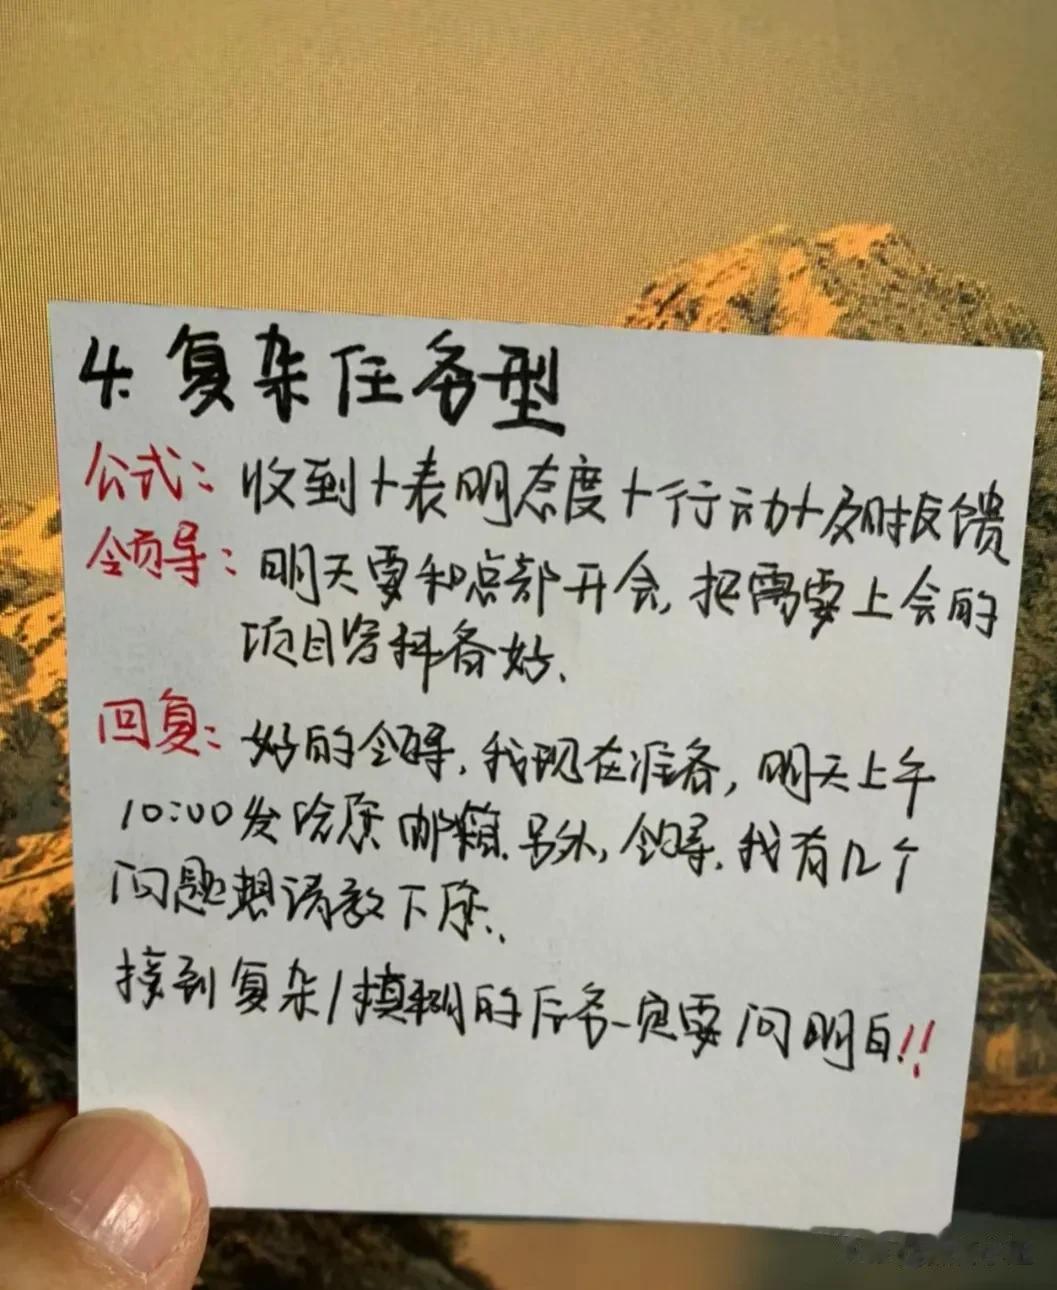 4. 复杂任务型
公式：收到+表明态度+行动+及时反馈
领导：明天要和总部开会，把需要上会的
项目资料备好.
回复：好的领导，我现在准备，明天上午
10:00发给您邮箱.另外，领导.我有几个
问题想请教下您.
接到复杂/模糊的任务一定要问明白!!